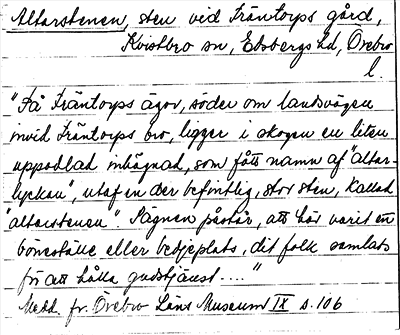 Altarstenen, sten vid Fräntorps gård,
Kvistbro sn, Edsbergs hd, Örebro
l.
"På Fräntorps ägor, söder om landsvägen
invid Fräntorps bro, ligger i skogen en liten
uppodlad inhägnad, som fått namn af "altar-
lyckan", utaf en der befintlig, stor sten, kallad
"altarstenen". Sägnen påstår, att här varit en
böneställe eller bedjeplats, dit folk samlats
för att hålla gudstjänst...."
Medd. fr. Örebro Läns Museum IX s. 106